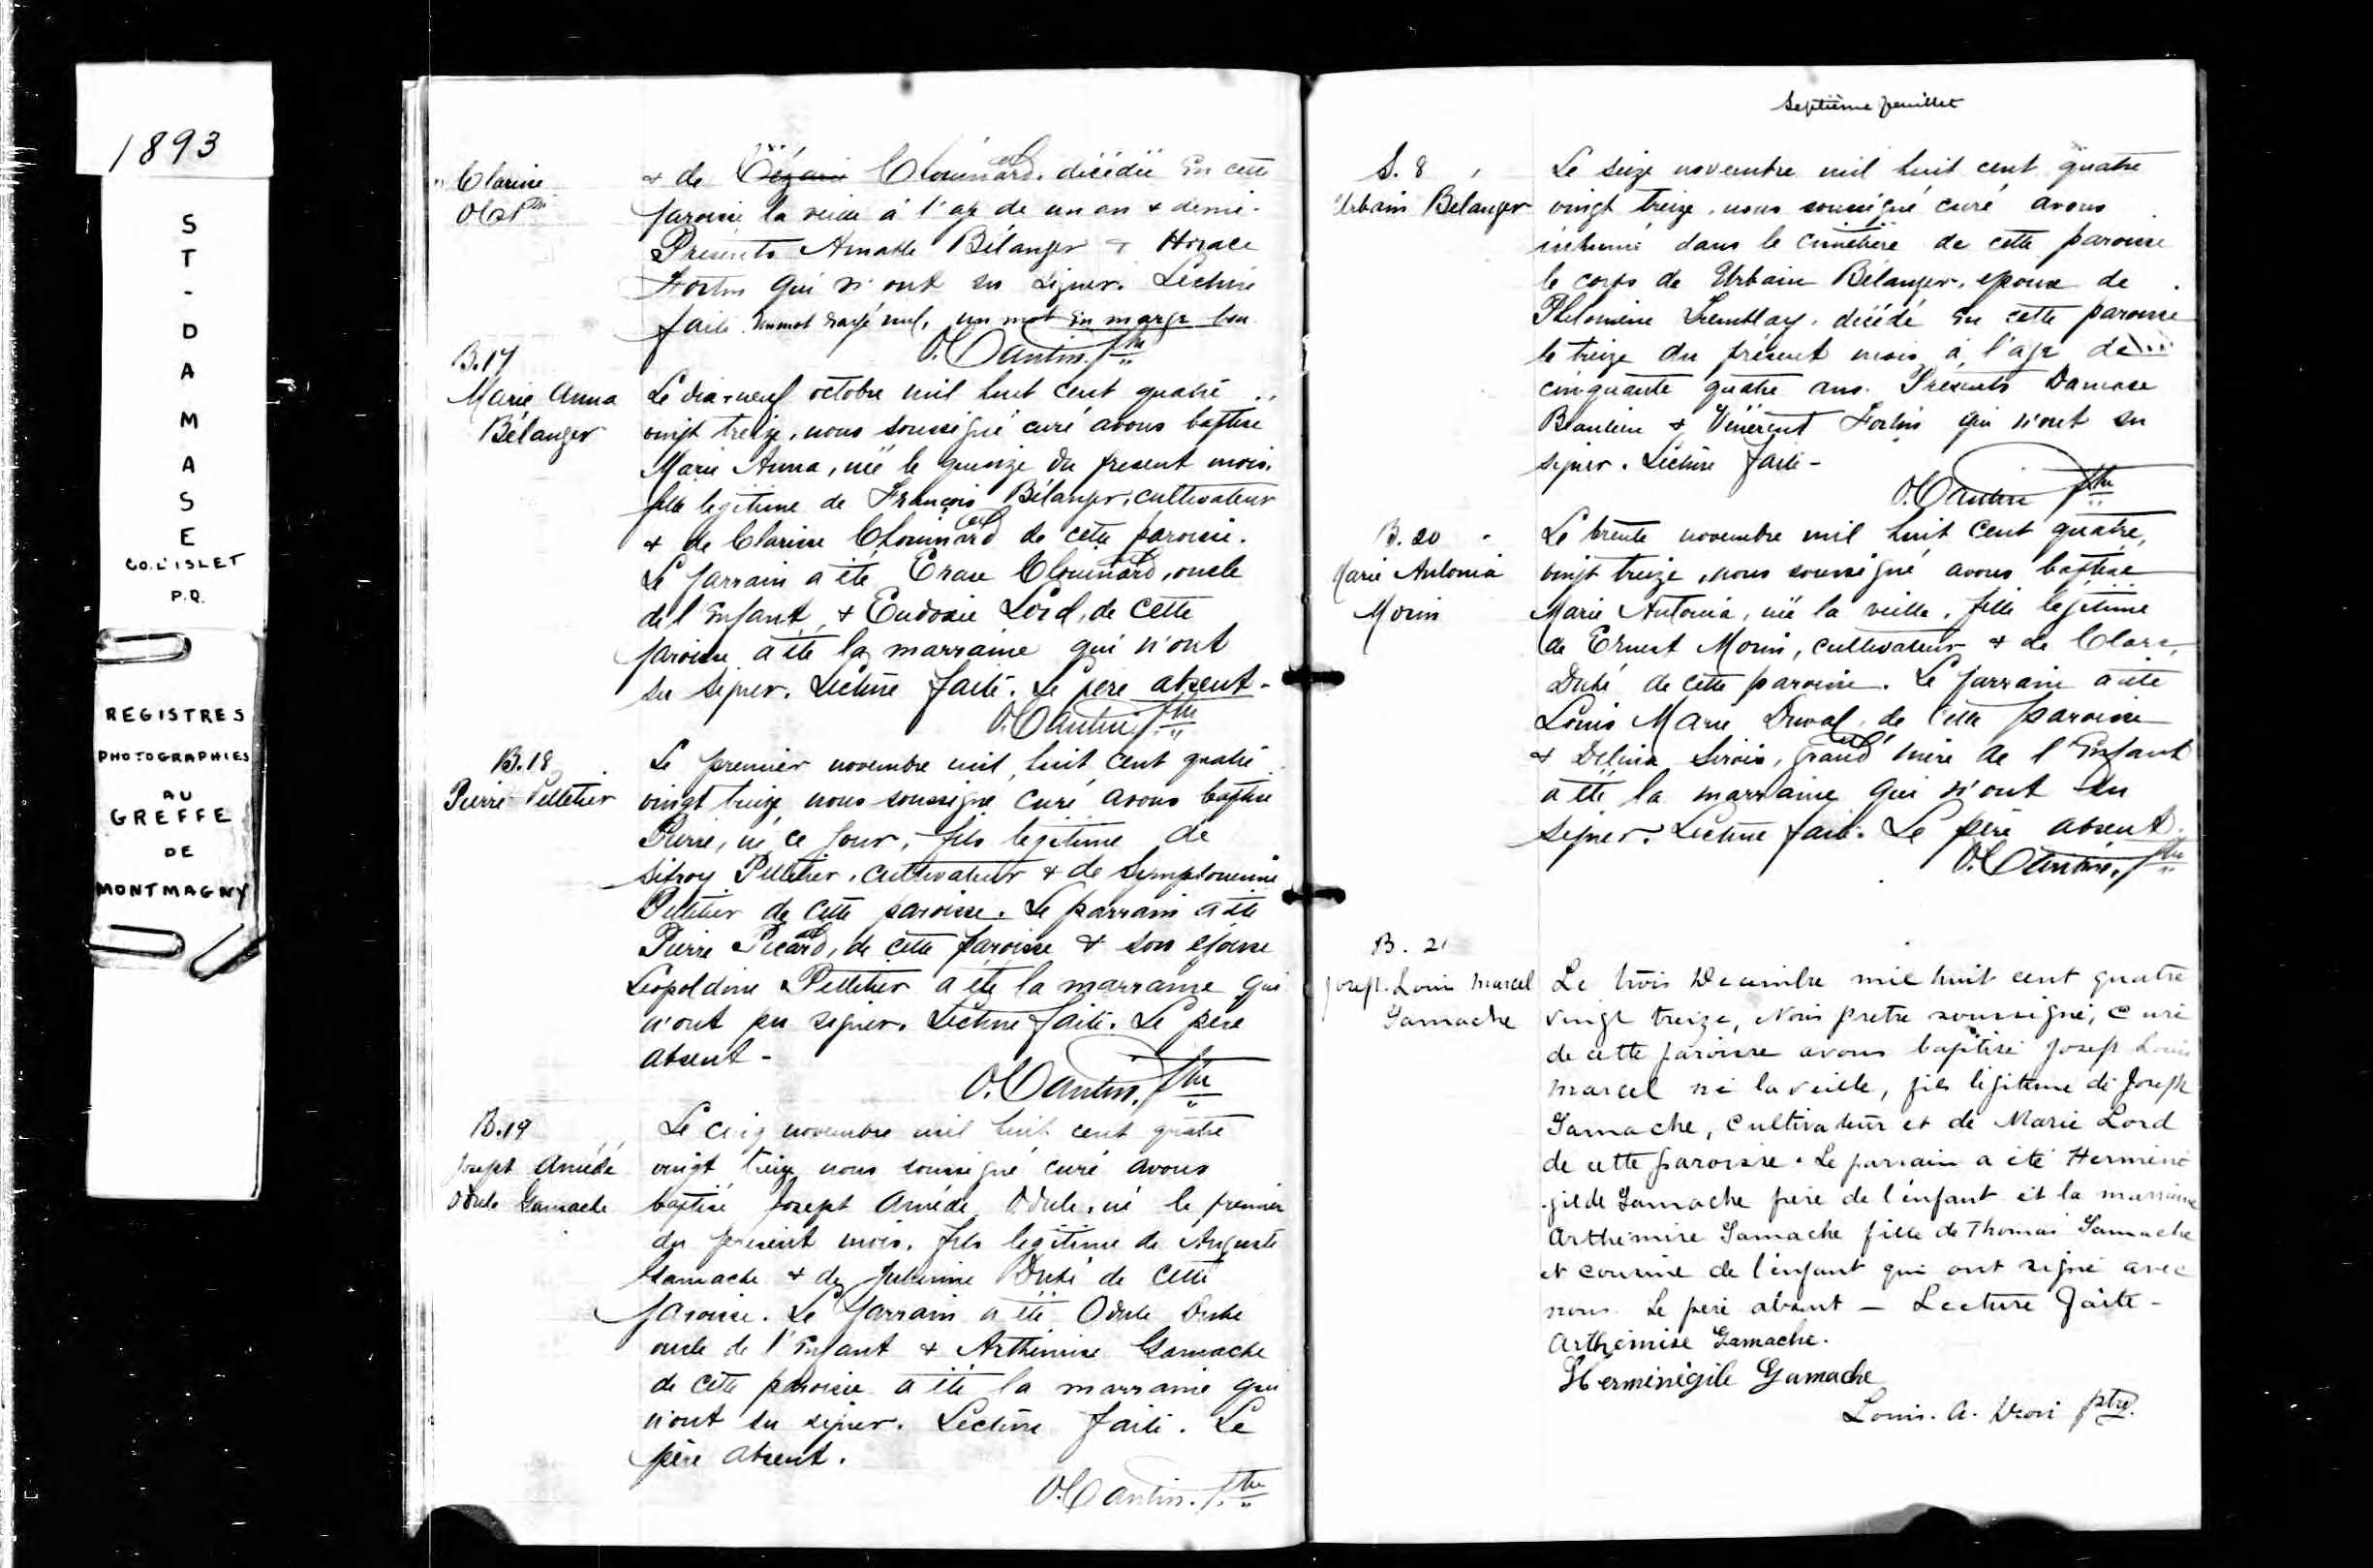 1893
S
T
-
D
A
M
A
S
E
CO. L'ISLET
P.Q.
REGISTRES
PHOTOGRAPHIES
AU
GREFFE
DE
MONTMAGNY
Clarisse
+ de Chouinard, décédée en cette
paroisse la veille à l'age de un an + demie.
Présents Amable Bélanger + Horace
Fortin qui n'ont su signer. Lecture
faite. un mot rayé nul, un mot en marge bon
O. Cantin. Ptre
B.17
Marie Anna
Bélanger
Le dix-neuf octobre mil huit cent quatre
vingt treize, nous soussigné curé avons baptisé
Marie Anna, née le quinze du present mois,
fille legitime de François Bélanger, cultivateur
+ de Clarisse Chouinard de cette paroisse.
Le parrain a été Chouinard, oncle
de l'Enfant, + Eudoxie Lord, de cette
paroisse a été la marraine qui n'ont
su signer. Lecture faite. Le père absent -
O. Cantin Ptre
B.18
Pierre Pelletier
Le premier novembre mil huit cent quatre
vingt treize nous soussigné curé avons baptisé
Pierre, né ce jour, fils legitime de
Pelletier, cultivateur + de
Pelletier de cette paroisse. Le parrain a été
Pierre Picard, de cette paroisse + son épouse
Leopoldine Pelletier a été la marraine qui
n'ont pu signer. Lecture faite. Le père
absent -
O. Cantin. Ptre
B.19
Joseph Amédé
Odule Gamache
Le cinq novembre mil huit cent quatre
vingt treize nous soussigné curé avons
baptisé Joseph Amédé Odule, né le premier
du present mois, fils legitime de Auguste
Gamache + de Dubé de cette
paroisse. Le parrain a été Odule Dube
oncle de l'Enfant + Arthémise Gamache
de cette paroisse a été la marraine qui
n'ont su signer. Lecture faite. Le
père absent.
O. Cantin. Ptre
Septième feuillet
S. 8
Urbain Belanger
Le seize novembre mil huit cent quatre
vingt treize, nous soussigné curé avons
inhumé dans le cimetière de cette paroisse
le corps de Urbain Bélanger, epoux de
Philomène Tremblay, décédé en cette paroisse
le treize du présent mois à l'age de
cinquante quatre ans. Présents Damase
Beaulieu + Vénérent Fortin qui n'ont su
signer. Lecture faite -
O. Cantin Ptre
B. 20
Marie Antonia
Morin
Le trente novembre mil huit cent quatre
vingt treize, nous soussigné avons baptisé
Marie Antonia, née la veille, fille legitime
de Ernest Morin, cultivateur + de Clara
Dubé de cette paroisse. Le parrain a été
Louis Marie Duval de cette paroisse
+ Delina Sirois, grand mère de l'Enfant
a été la marraine qui n'ont su
signer. Lecture faite. Le père absent.
O. Cantin. Ptre
B. 21
Joseph. Louis Marcel
Gamache
Le trois Decembre mil huit cent quatre
vingt treize, Nous pretre soussigné, curé
de cette paroisse avons baptisé Joseph Louis
Marcel né la veille, fils légitime de Joseph
Gamache, Cultivateur et de Marie Lord
de cette paroisse. Le parrain a été Herméné
-gilde Gamache frère de l'enfant et la marraine
Arthémise Gamache fille de Thomas Gamache
et cousine de l'enfant qui ont signé avec
nous. Le père absent - Lecture faite -
Arthémise Gamache.
Herménégile Gamache
Louis. A. ptre.